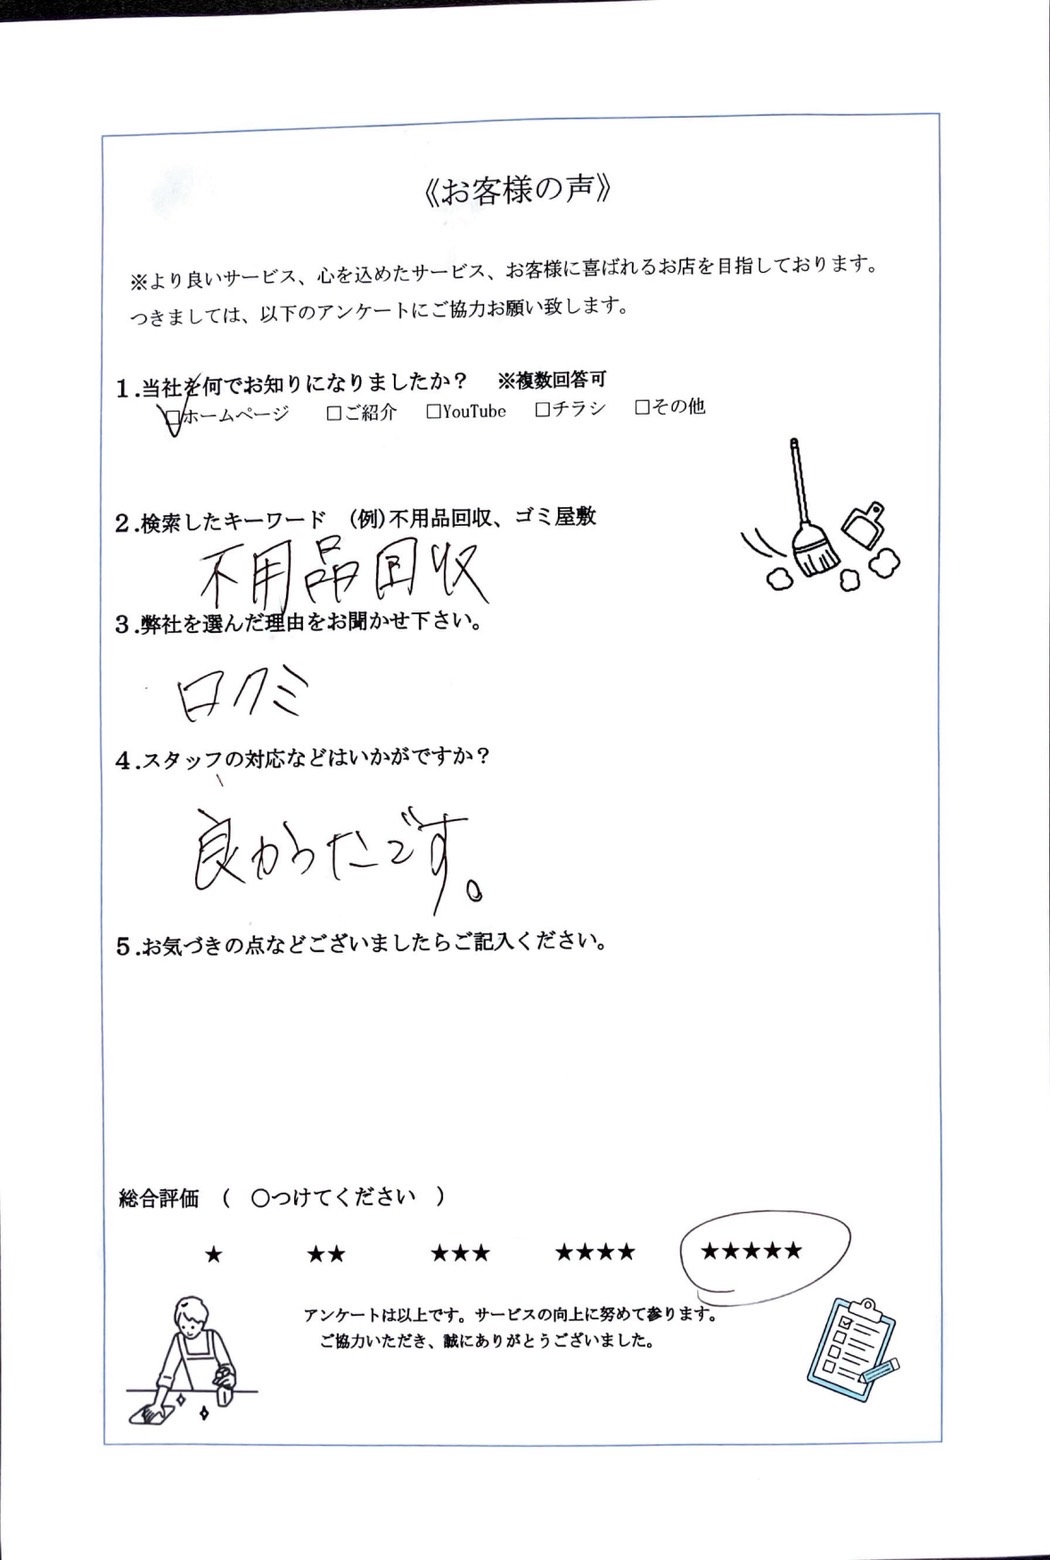 《お客様の声》
※より良いサービス、心を込めたサービス、お客様に喜ばれるお店を目指しております。
つきましては、以下のアンケートにご協力お願い致します。
1.当社を何でお知りになりましたか？　※複数回答可
☑ホームページ　□ご紹介　□YouTube　□チラシ　□その他
2.検索したキーワード　(例)不用品回収、ゴミ屋敷
不用品回収
3.弊社を選んだ理由をお聞かせ下さい。
口クミ
4.スタッフの対応などはいかがですか？
良かったです。
5.お気づきの点などございましたらご記入ください。
総合評価　(　〇つけてください　)
★　★★　★★★　★★★★　★★★★★
アンケートは以上です。サービスの向上に努めて参ります。
ご協力いただき、誠にありがとうございました。